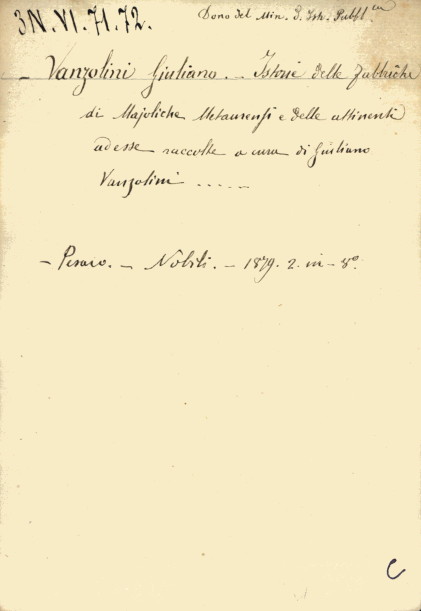 3N.VI.71.72.
Dono del Min. d. Istr. Pubbl.ca
- Vanzolini Giuliano. - Istorie delle Fabbriche
di Majoliche Metaurensi e delle attinenti
ad esse raccolte a cura di Giuliano
Vanzolini .....
- Pesaro. - Nobili. - 1879. 2. in - 8°.
C